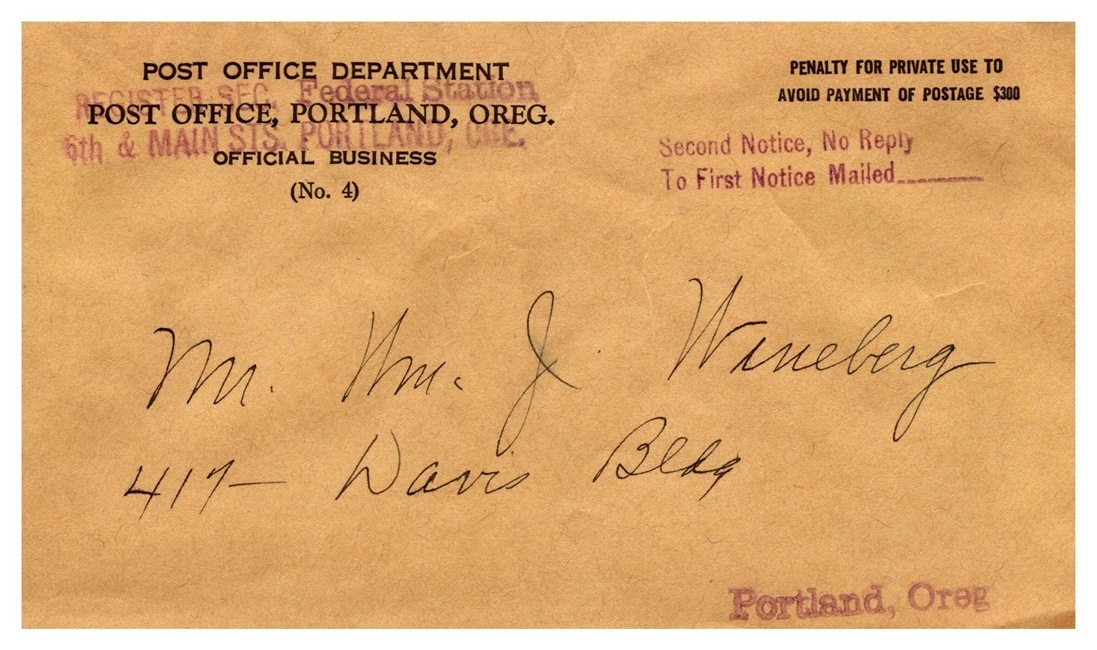 POST OFFICE DEPARTMENT
REGISTER SEC. Federal Station
POST OFFICE, PORTLAND, OREG.
6th & MAIN STS. PORTLAND, ORE.
OFFICIAL BUSINESS
(No. 4)
PENALTY FOR PRIVATE USE TO
AVOID PAYMENT OF POSTAGE $300
Second Notice, No Reply
To First Notice Mailed
Mr. Wm. J. Wineberg
417- Davis Bldg
Portland, Oreg